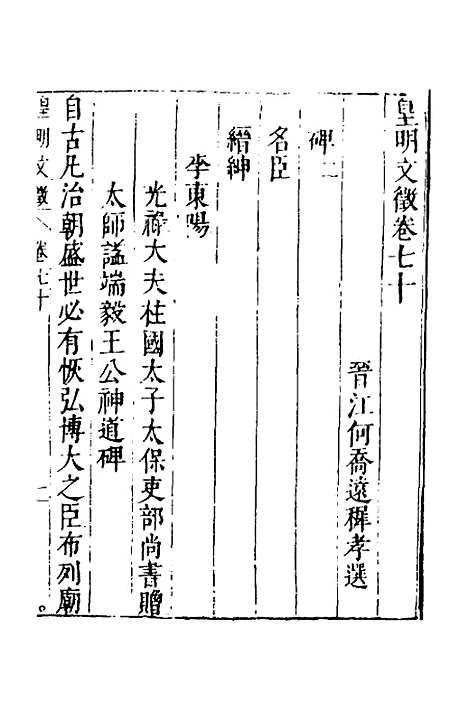 皇明文徵卷七十
晉江何喬遠穉孝選
碑二
名臣
縉紳
李東陽
光祿大夫柱國太子太保吏部尚書贈
太師諡端毅王公神道碑
自古凡治朝盛世必有恢弘博大之臣布列廟
皇明文徵 卷七十